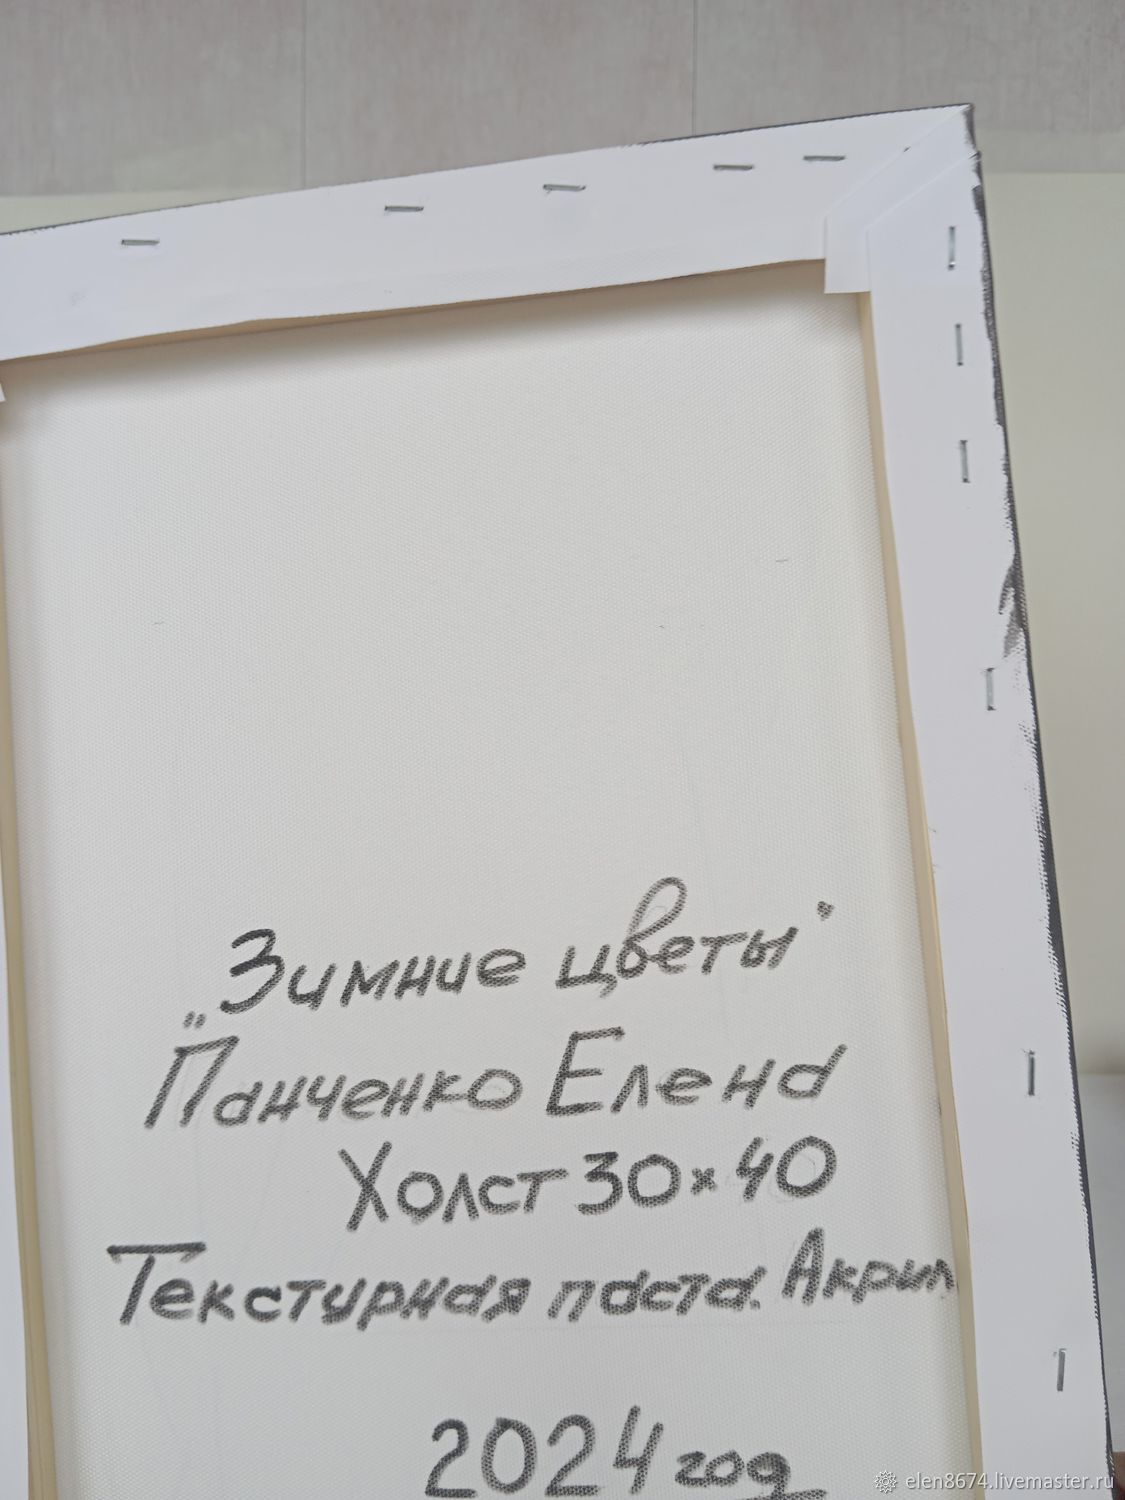 „Зимние цветы"
Панченко Елена
Холст 30×40
Текстурная паста. Акрил
2024 год
elen8674.livemaster.ru